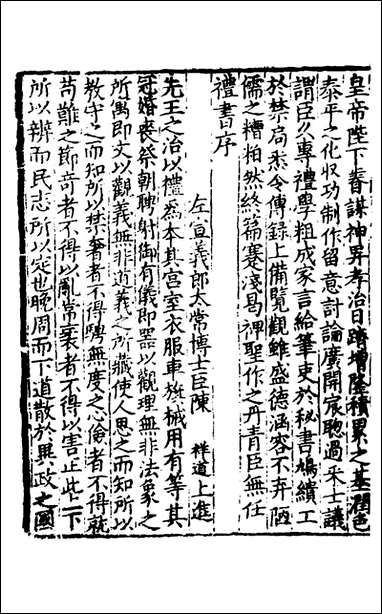 皇帝陛下眷謀神昇考治日躋增隆積累之基潤色
泰平之化収功制作留意討論廣開宸聦過采士議
謂臣久專禮學粗成家言給筆吏於秘書鳩繢工
於禁局悉令傳録上備覽觀雖盛德涵容不弃陋
儒之糟粕然終篇蹇淺曷裨聖作之丹青臣無任
禮書序
左宣義郎太常博士臣陳 祥道上進
先王之治以禮為本其宮室衣服車旗械用有等其
冠婚喪祭朝聘射御有儀即器以觀理無非法象之
所寓即文以觀義無非道義之所藏使人思之而知所以
教守之而知所以禁奢者不得騁無度之心儉者不得就
苟難之節奇者不得以亂常衺者不得以害正此上下
所以辨而民志所以定也晚周而下道散於異政之國